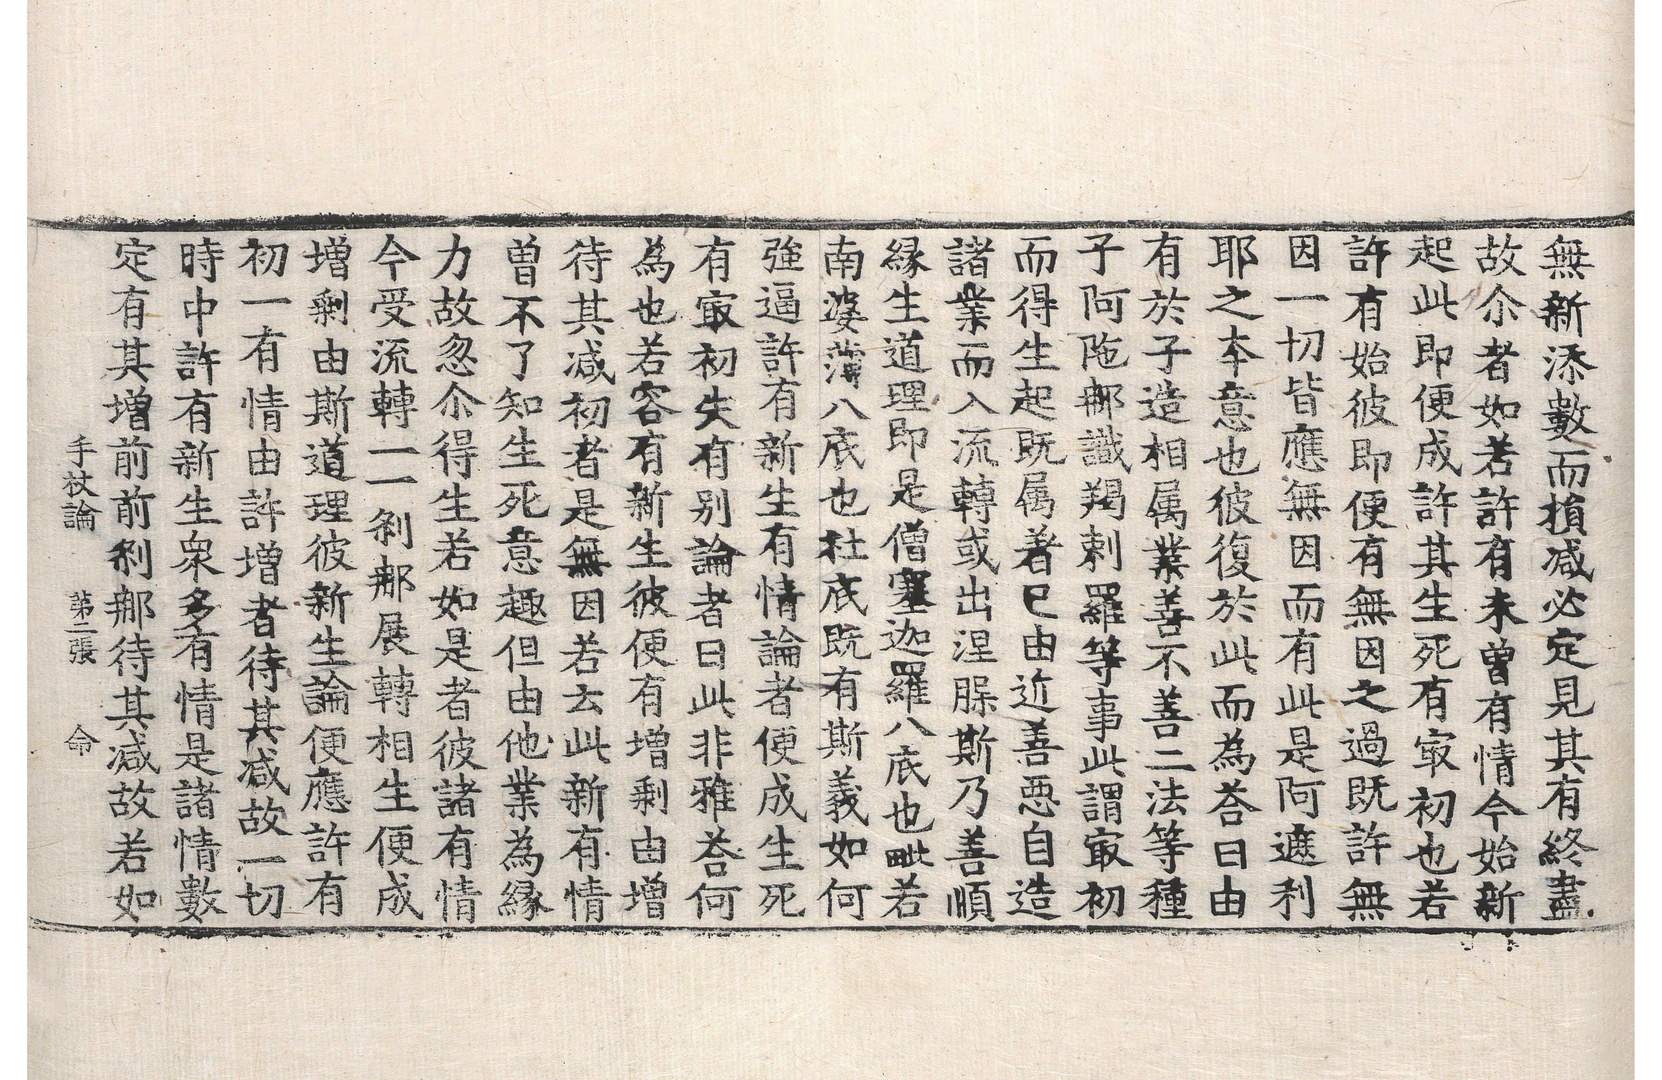 無新添數而損减必定見其有終盡
故尒者如若許有未曾有情今始新
起此即便成許其生死有㝡初也若
許有始彼即便有無因之過既許無
因一切皆應無因而有此是阿遮利
耶之本意也彼復於此而為荅曰由
有於子造相属業善不善二法等種
子阿陁𨚗識羯剌羅等事此謂㝡初
而得生起既属著已由近善恶自造
諸業而入流轉或出涅脲斯乃善順
縁生道理即是僧塞迦羅八底也毗若
南婆薄八底也社底既有斯義如何
強逼許有新生有情論者便成生死
有㝡初失有别論者曰此非雅荅何
為也若容有新生彼便有增剩由增
待其减初者是無因若云此新有情
曾不了知生死意趣但由他業為縁
力故忽尒得生若如是者彼諸有情
今受流轉一一剎𨚗展轉相生便成
增剩由斯道理彼新生論便應許有
初一有情由許增者待其减故一切
時中許有新生衆多有情是諸情數
定有其增前前剎𨚗待其减故若如
手杖論　第二張　命